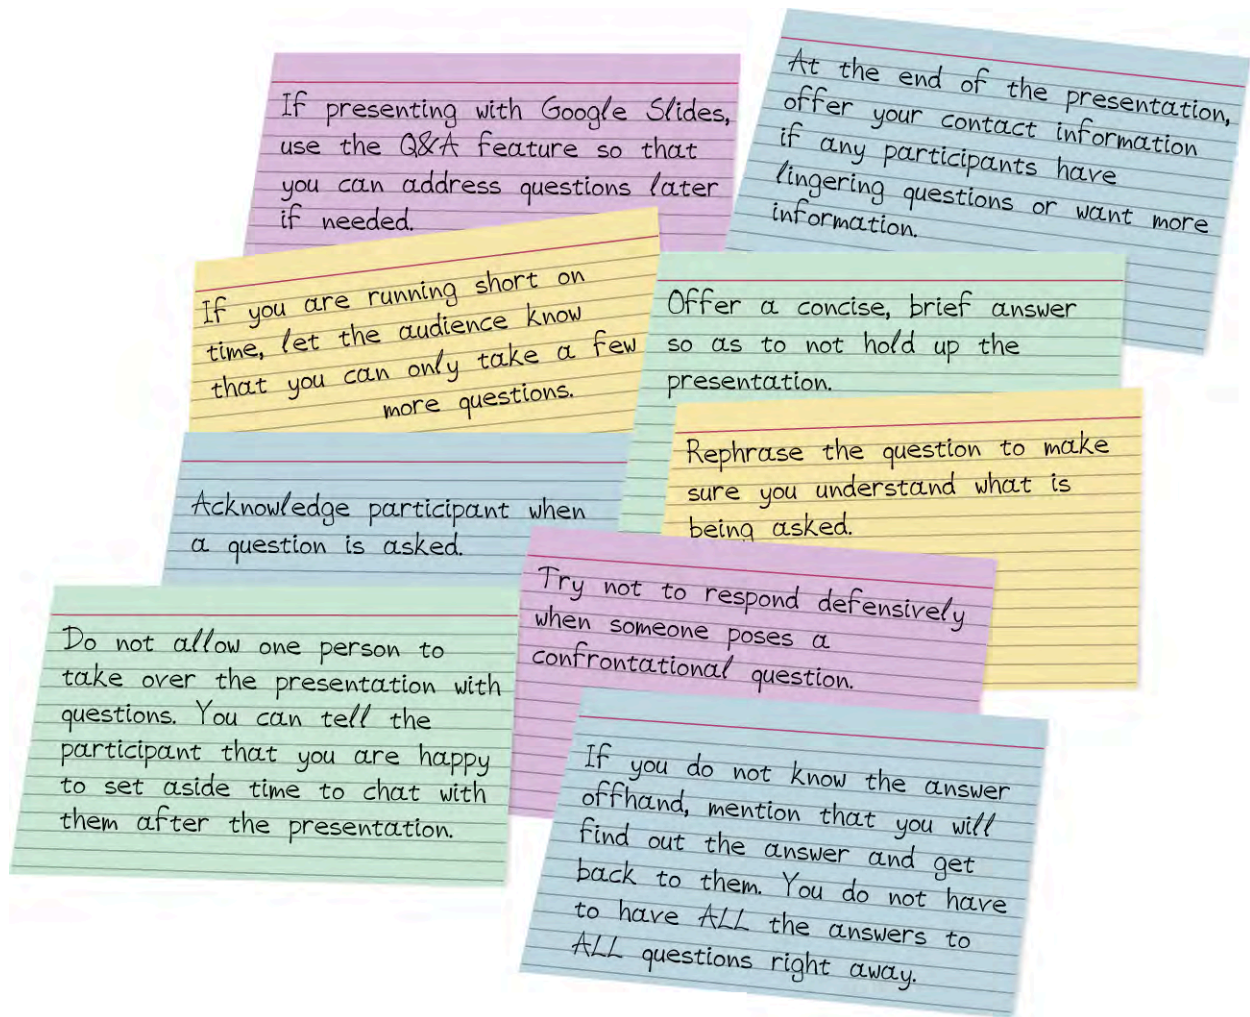 If presenting with Google Slides,
use the Q&A feature so that
you can address questions later
if needed.
At the end of the presentation,
offer your contact information
if any participants have
lingering questions or want more
information.
If you are running short on
time, let the audience know
that you can only take a few
more questions.
Offer a concise, brief answer
so as to not hold up the
presentation.
Acknowledge participant when
a question is asked.
Rephrase the question to make
sure you understand what is
being asked.
Try not to respond defensively
when someone poses a
confrontational question.
Do not allow one person to
take over the presentation with
questions. You can tell the
participant that you are happy
to set aside time to chat with
them after the presentation.
If you do not know the answer
offhand, mention that you will
find out the answer and get
back to them. You do not have
to have ALL the answers to
ALL questions right away.